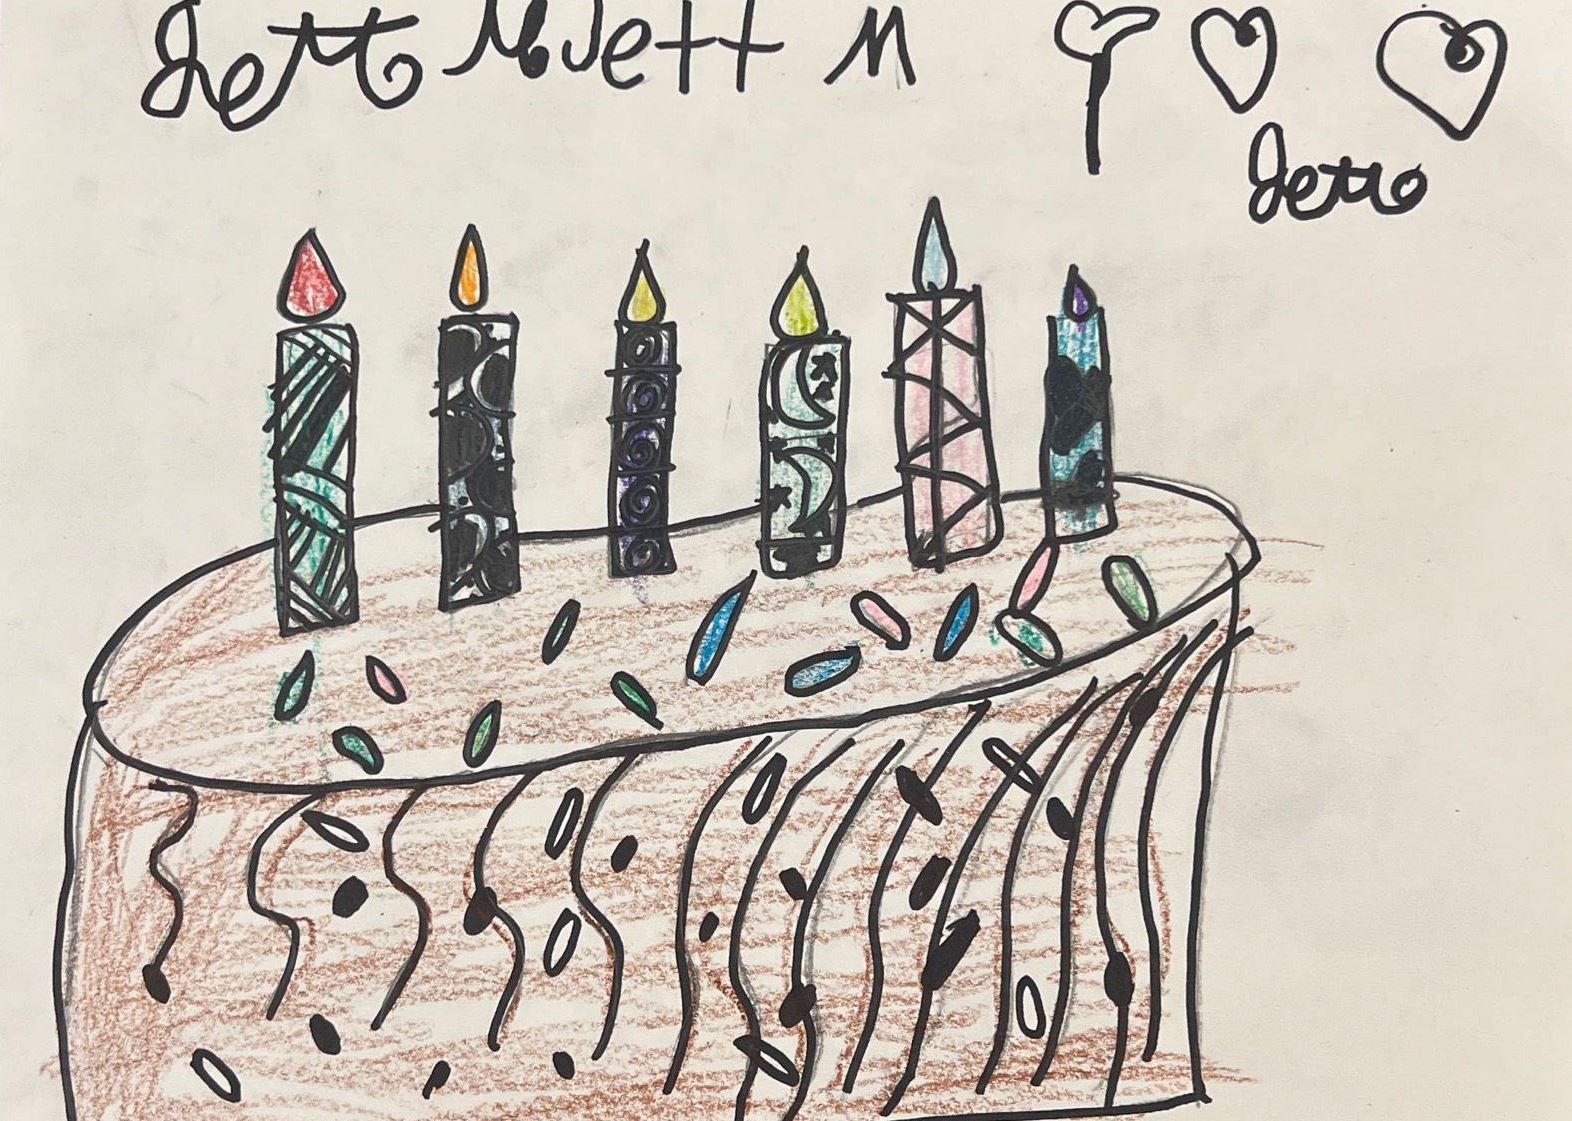 Jett M Jett M
Jett